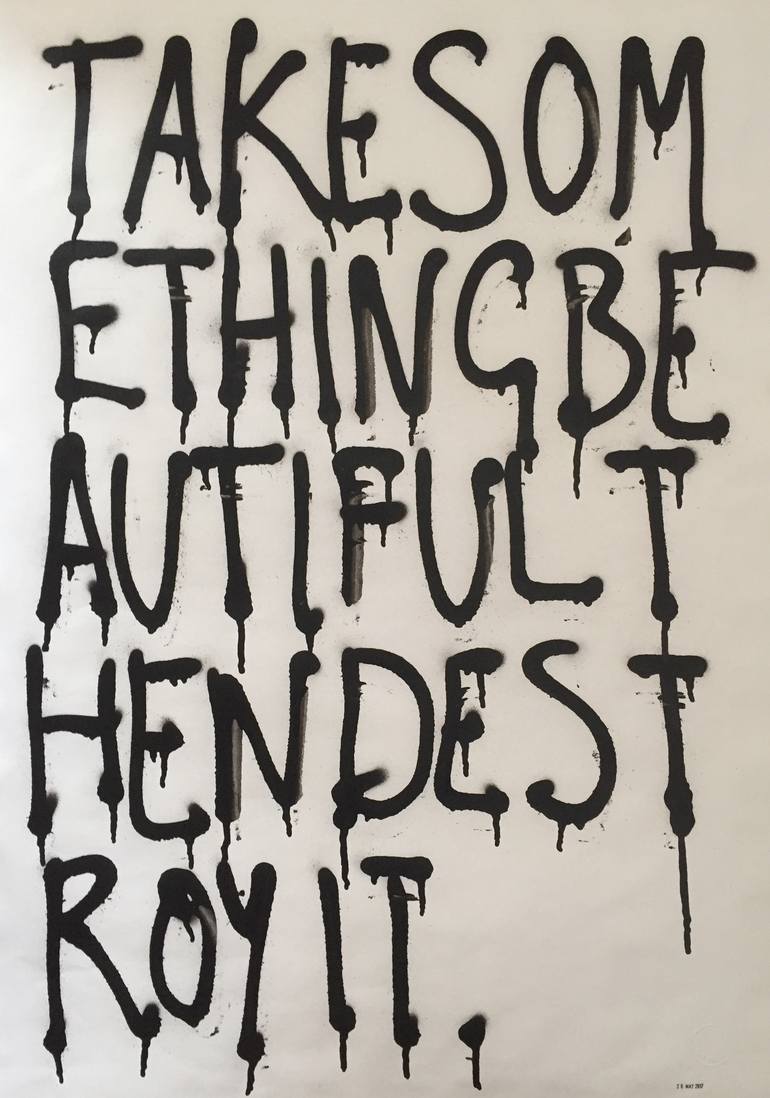 TAKESOM
ETHINGBE
AUTIFULT
HENDEST
ROY IT.
26 MAY 2017